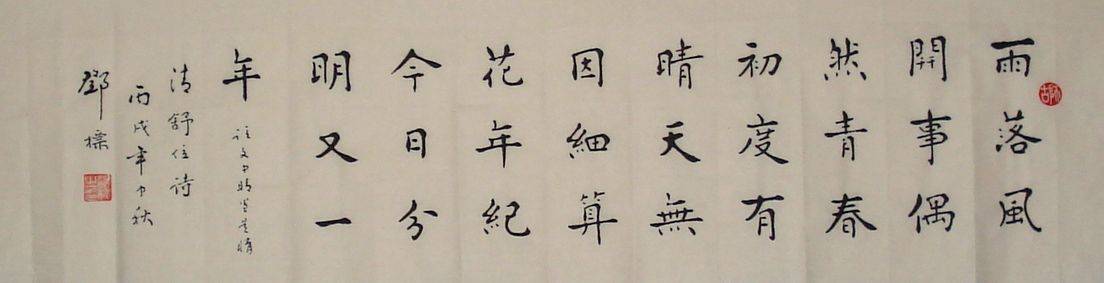 雨落風
開事偶
然青春
初度有
晴天無
因細算
花年紀
今日分
明又一
年
註文中晴當是情
清舒位诗
丙戌年中秋
鄧標